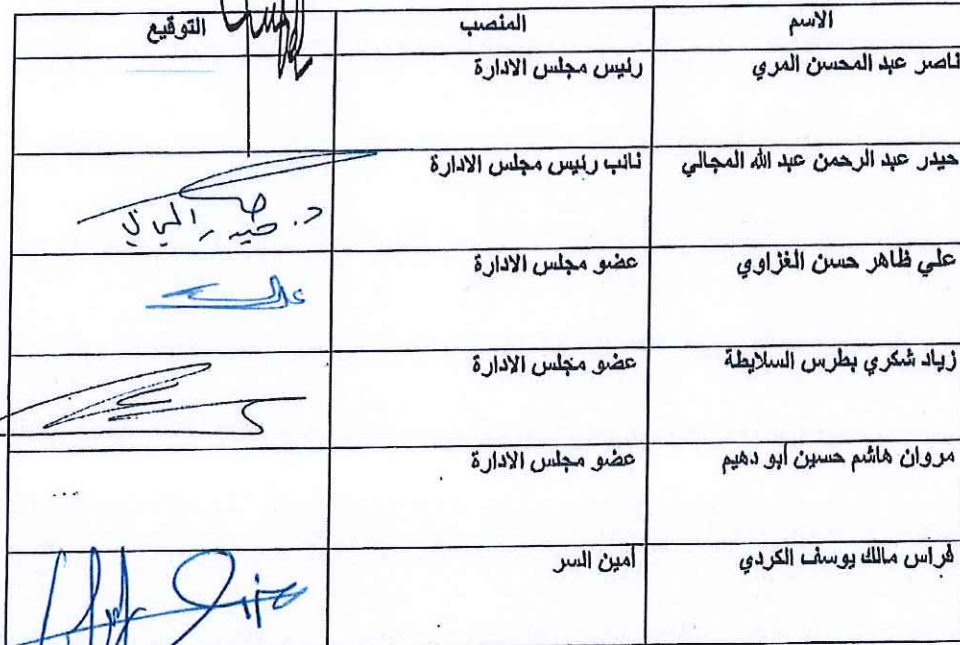 الاسم المنصب التوقيع
ناصر عبد المحسن المري رئيس مجلس الادارة
حيدر عبد الرحمن عبد الله المجالي نائب رئيس مجلس الادارة
د. حيدر المجالي
علي ظاهر حسن الغزاوي عضو مجلس الادارة
زياد شكري بطرس السلايطة عضو مجلس الادارة
مروان هاشم حسين أبو دهيم عضو مجلس الادارة
...
فراس مالك يوسف الكردي أمين السر